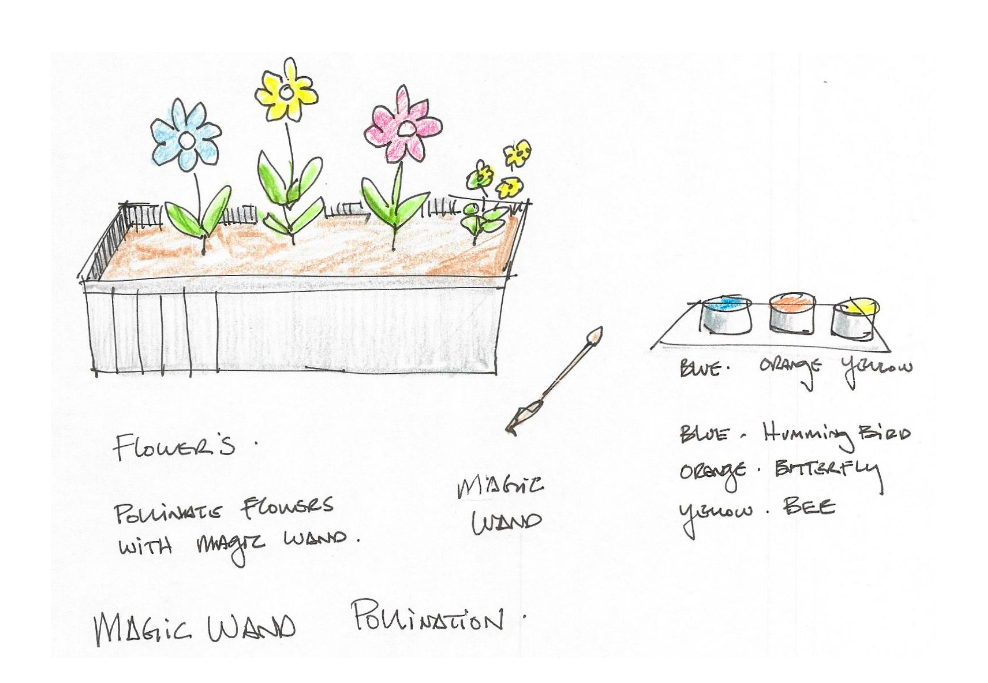 BLUE. ORANGE YELLOW
FLOWER'S.
POLLINATE FLOWERS
WITH MAGIC WAND.
MAGIC
WAND
BLUE. HUMMING BIRD
ORANGE. BUTTERFLY
YELLOW. BEE
MAGIC WAND POLLINATION.